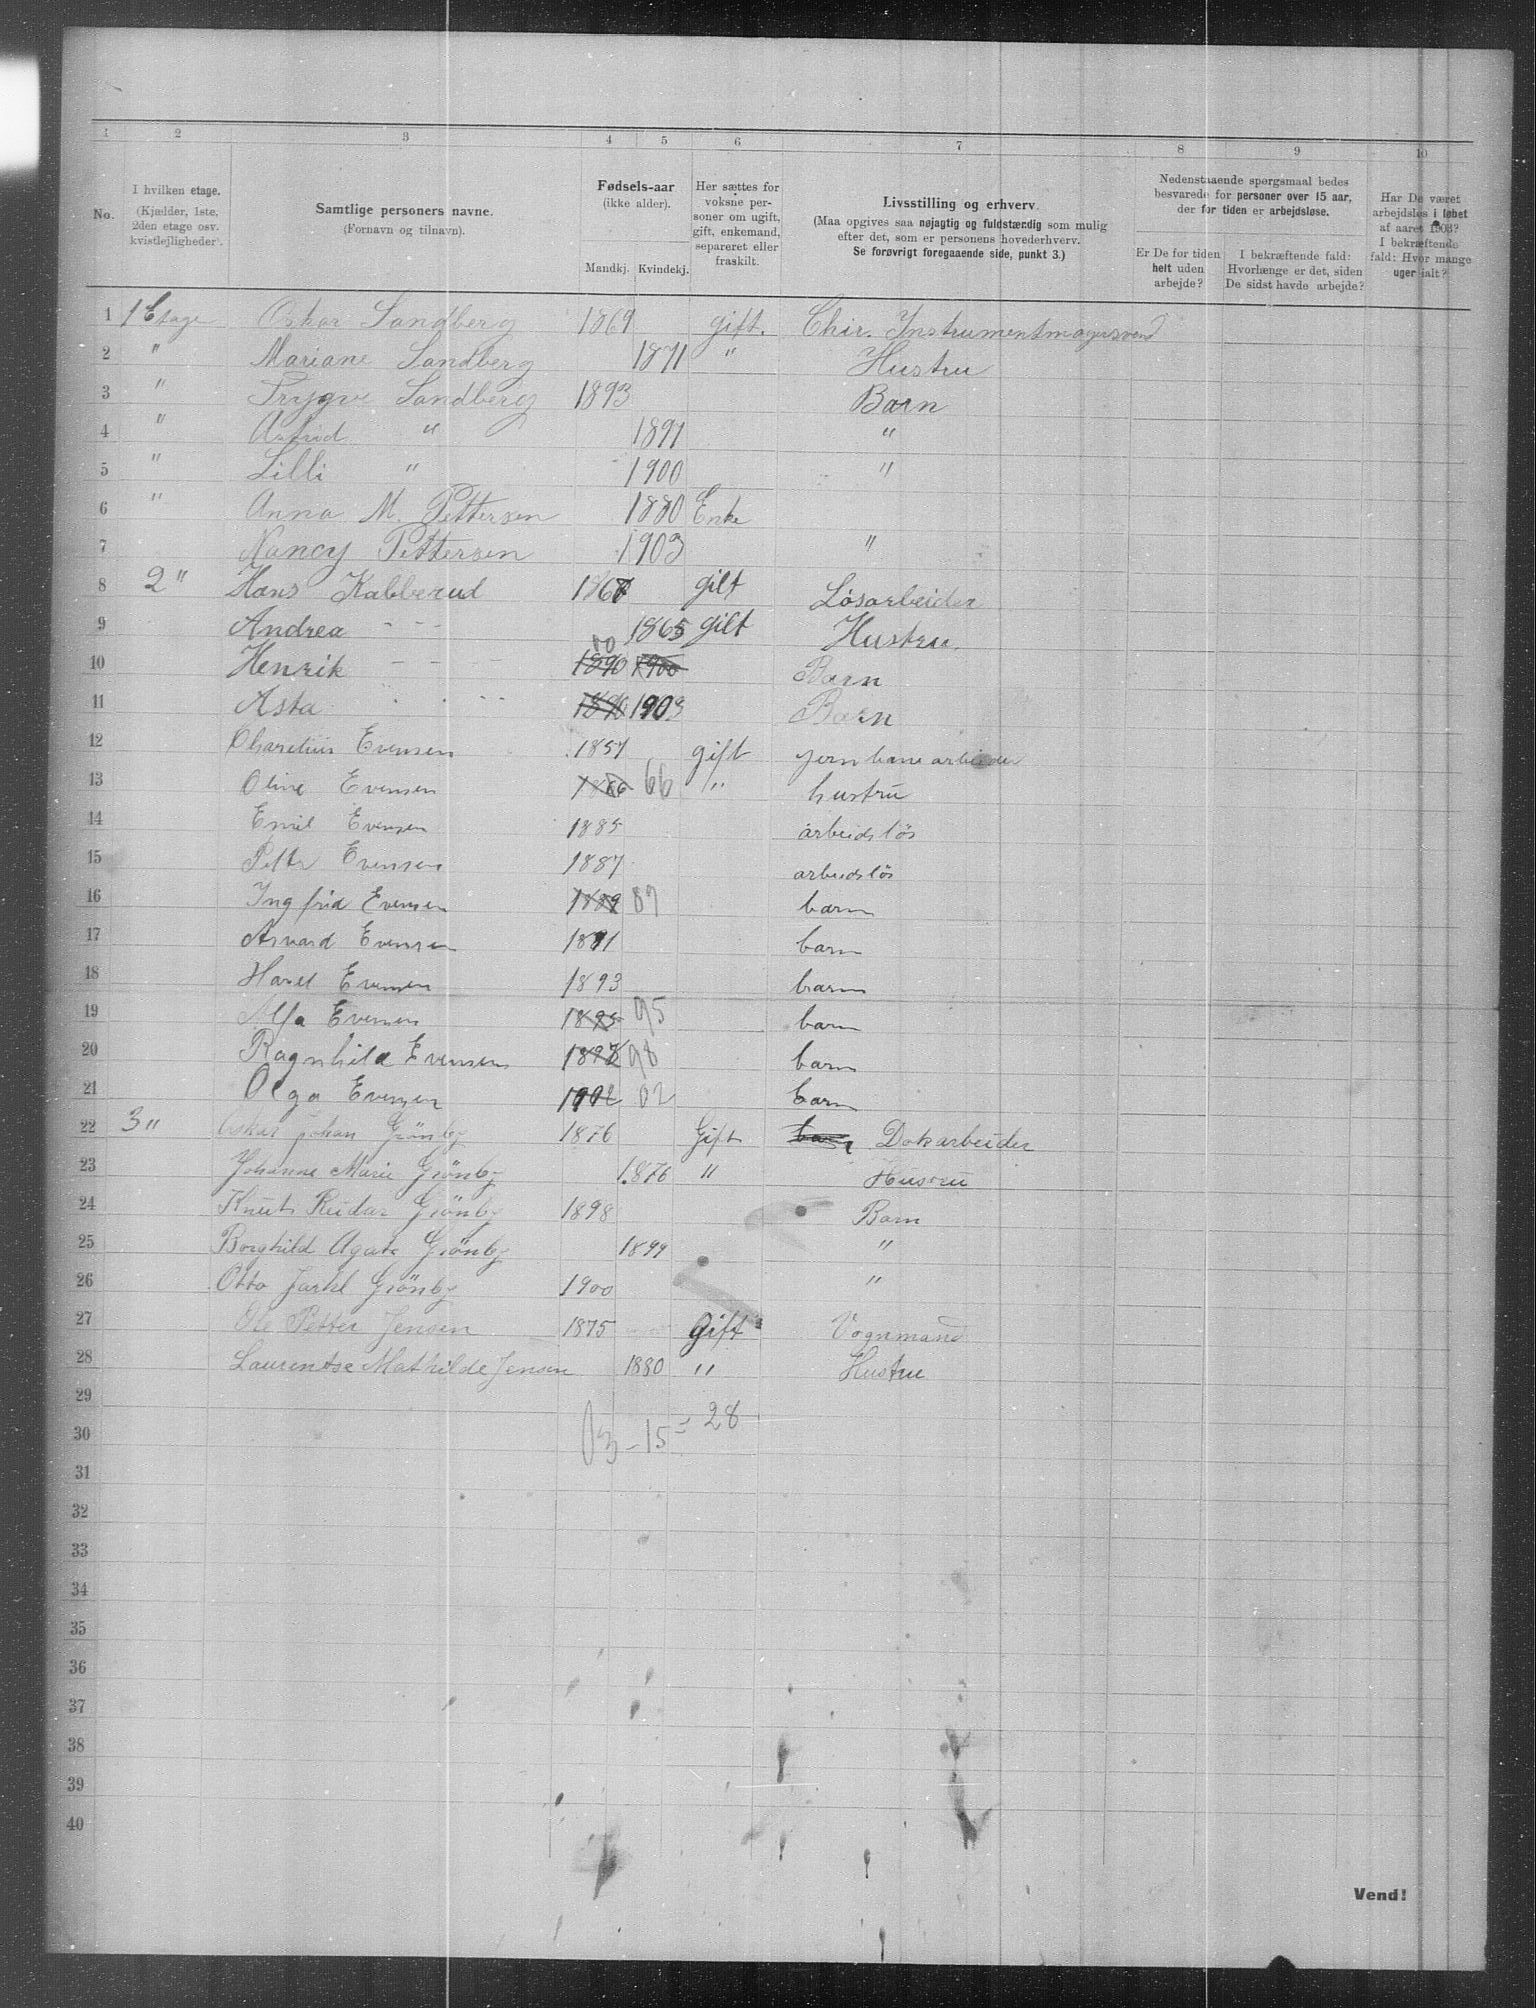 1 2 3 4 5 6 7 8 9 10
No.
I hvilken etage.
(Kjælder, 1ste,
2den etage osv.
kvistleiligheder).
Samtlige personers navne.
(Fornavn og tilnavn).
Fødsels-aar
(ikke alder).
Mandkj. Kvindekj.
Her sættes for
voksne per-
soner om ugift,
gift, enkemand,
separeret eller
fraskilt.
Livsstilling og erhverv.
(Maa opgives saa nøjagtig og fuldstændig som mulig
efter det, som er personens hovederhverv.
Se forøvrigt foregaaende side, punkt 3.)
Nedenstaaende spørgsmaal bedes
besvarede for personer over 15 aar,
der for tiden er arbejdsløse.
Er De for tiden
helt uden
arbejde?
I bekræftende fald:
Hvorlænge er det, siden
De sidst havde arbejde?
Har De været
arbejdsløs i løbet
af aaret 1903?
I bekræftende
fald: Hvor mange
uger ialt?
1 1 Etage Oskar Sandberg 1869 gift. Chir. Instrumentmagersvend
2 " Mariane Sandberg 1871 " Hustru
3 " Trygve Sandberg 1893 Barn
4 " Astrid " 1891 "
5 " Lilli " 1900 "
6 " Anna M. Pettersen 1880 Enke
7 Nancy Pettersen 1903 "
8 2 " Hans Kabberud 1867 gift Løsarbeider
9 Andrea - - - 1865 gift Hustru.
10 Henrik - - - 1890 00 1900 Barn
11 Asta - - - 1890 1903 Barn
12 Charetius Evensen 1857 gift jernbanearbeider
13 Oline Evensen 1866 66 " hustru
14 Emil Evensen 1885 arbeidsløs
15 Petter Evensen 1887 arbeidsløs
16 Ingfrid Evensen 1889 89 barn
17 Asvard Evensen 1891 barn
18 Harel Evensen 1893 barn
19 Alfa Evensen 1895 95 barn
20 Ragnhild Evensen 1898 98 barn
21 Olga Evensen 1902 02 barn
22 3 " Oskar Johan Grönby 1876 Gift barn Dokarbeider
23 Johanne Marie Grönby 1876 " Hustru
24 Knut Reidar Grönby 1898 Barn
25 Borghild Agate Grönby 1899 "
26 Otto Jarkel Grönby 1900 "
27 Ole Petter Jensen 1875 Gift Vognmand
28 Laurentse Mathilde Jensen 1880 " Hustru
29
30 13 - 15 = 28
31
32
33
34
35
36
37
38
39
40
Vend!